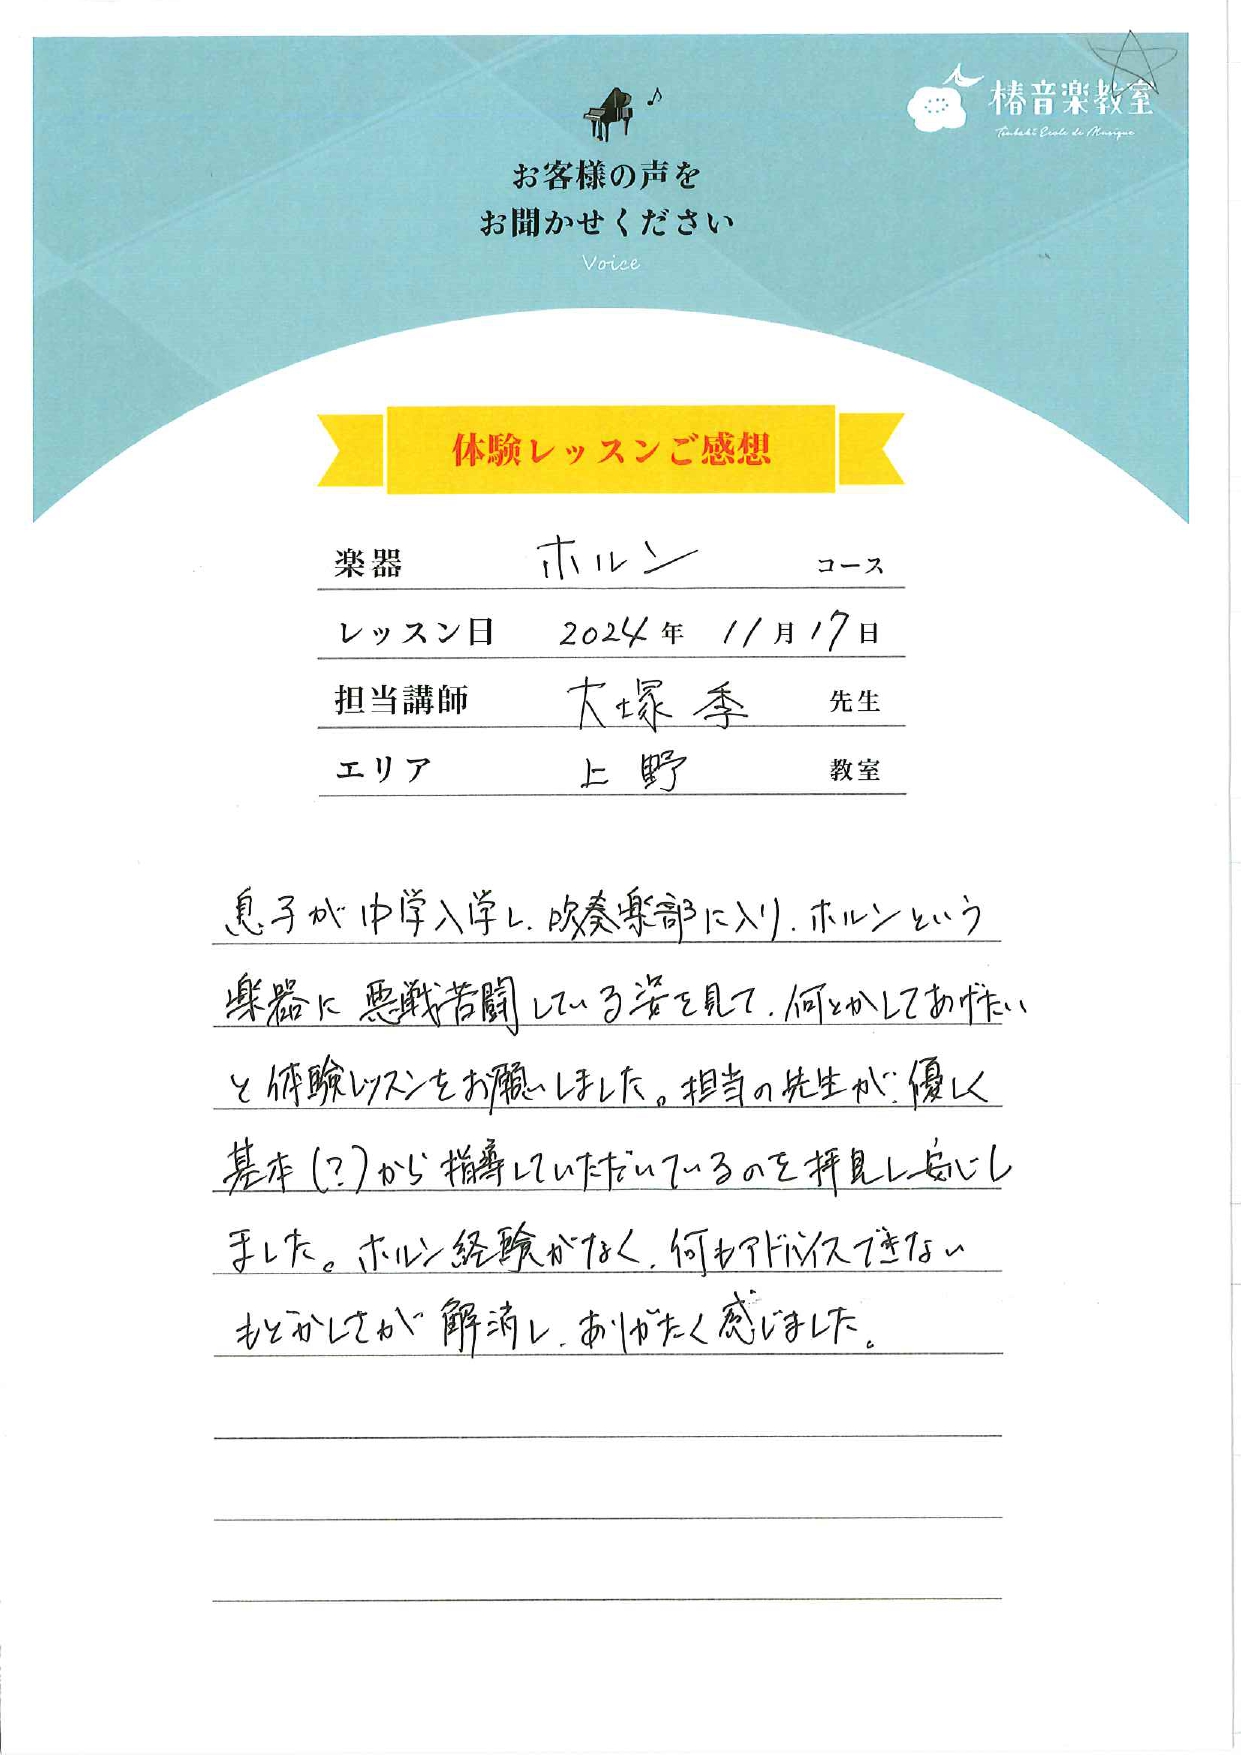 椿音楽教室
Tsubaki Ecole de Musique
お客様の声を
お聞かせください
Voice
体験レッスンご感想
楽器 ホルン コース
レッスン日 2024年 11月17日
担当講師 大塚 季 先生
エリア 上野 教室
息子が中学入学し、吹奏楽部に入り、ホルンという
楽器に悪戦苦闘している姿を見て、何とかしてあげたい
と体験レッスンをお願いしました。担当の先生が、優しく
基本(?)から指導していただいているのを拝見し安心し
ました。ホルン経験がなく、何もアドバイスできない
もどかしさが解消し、ありがたく感じました。